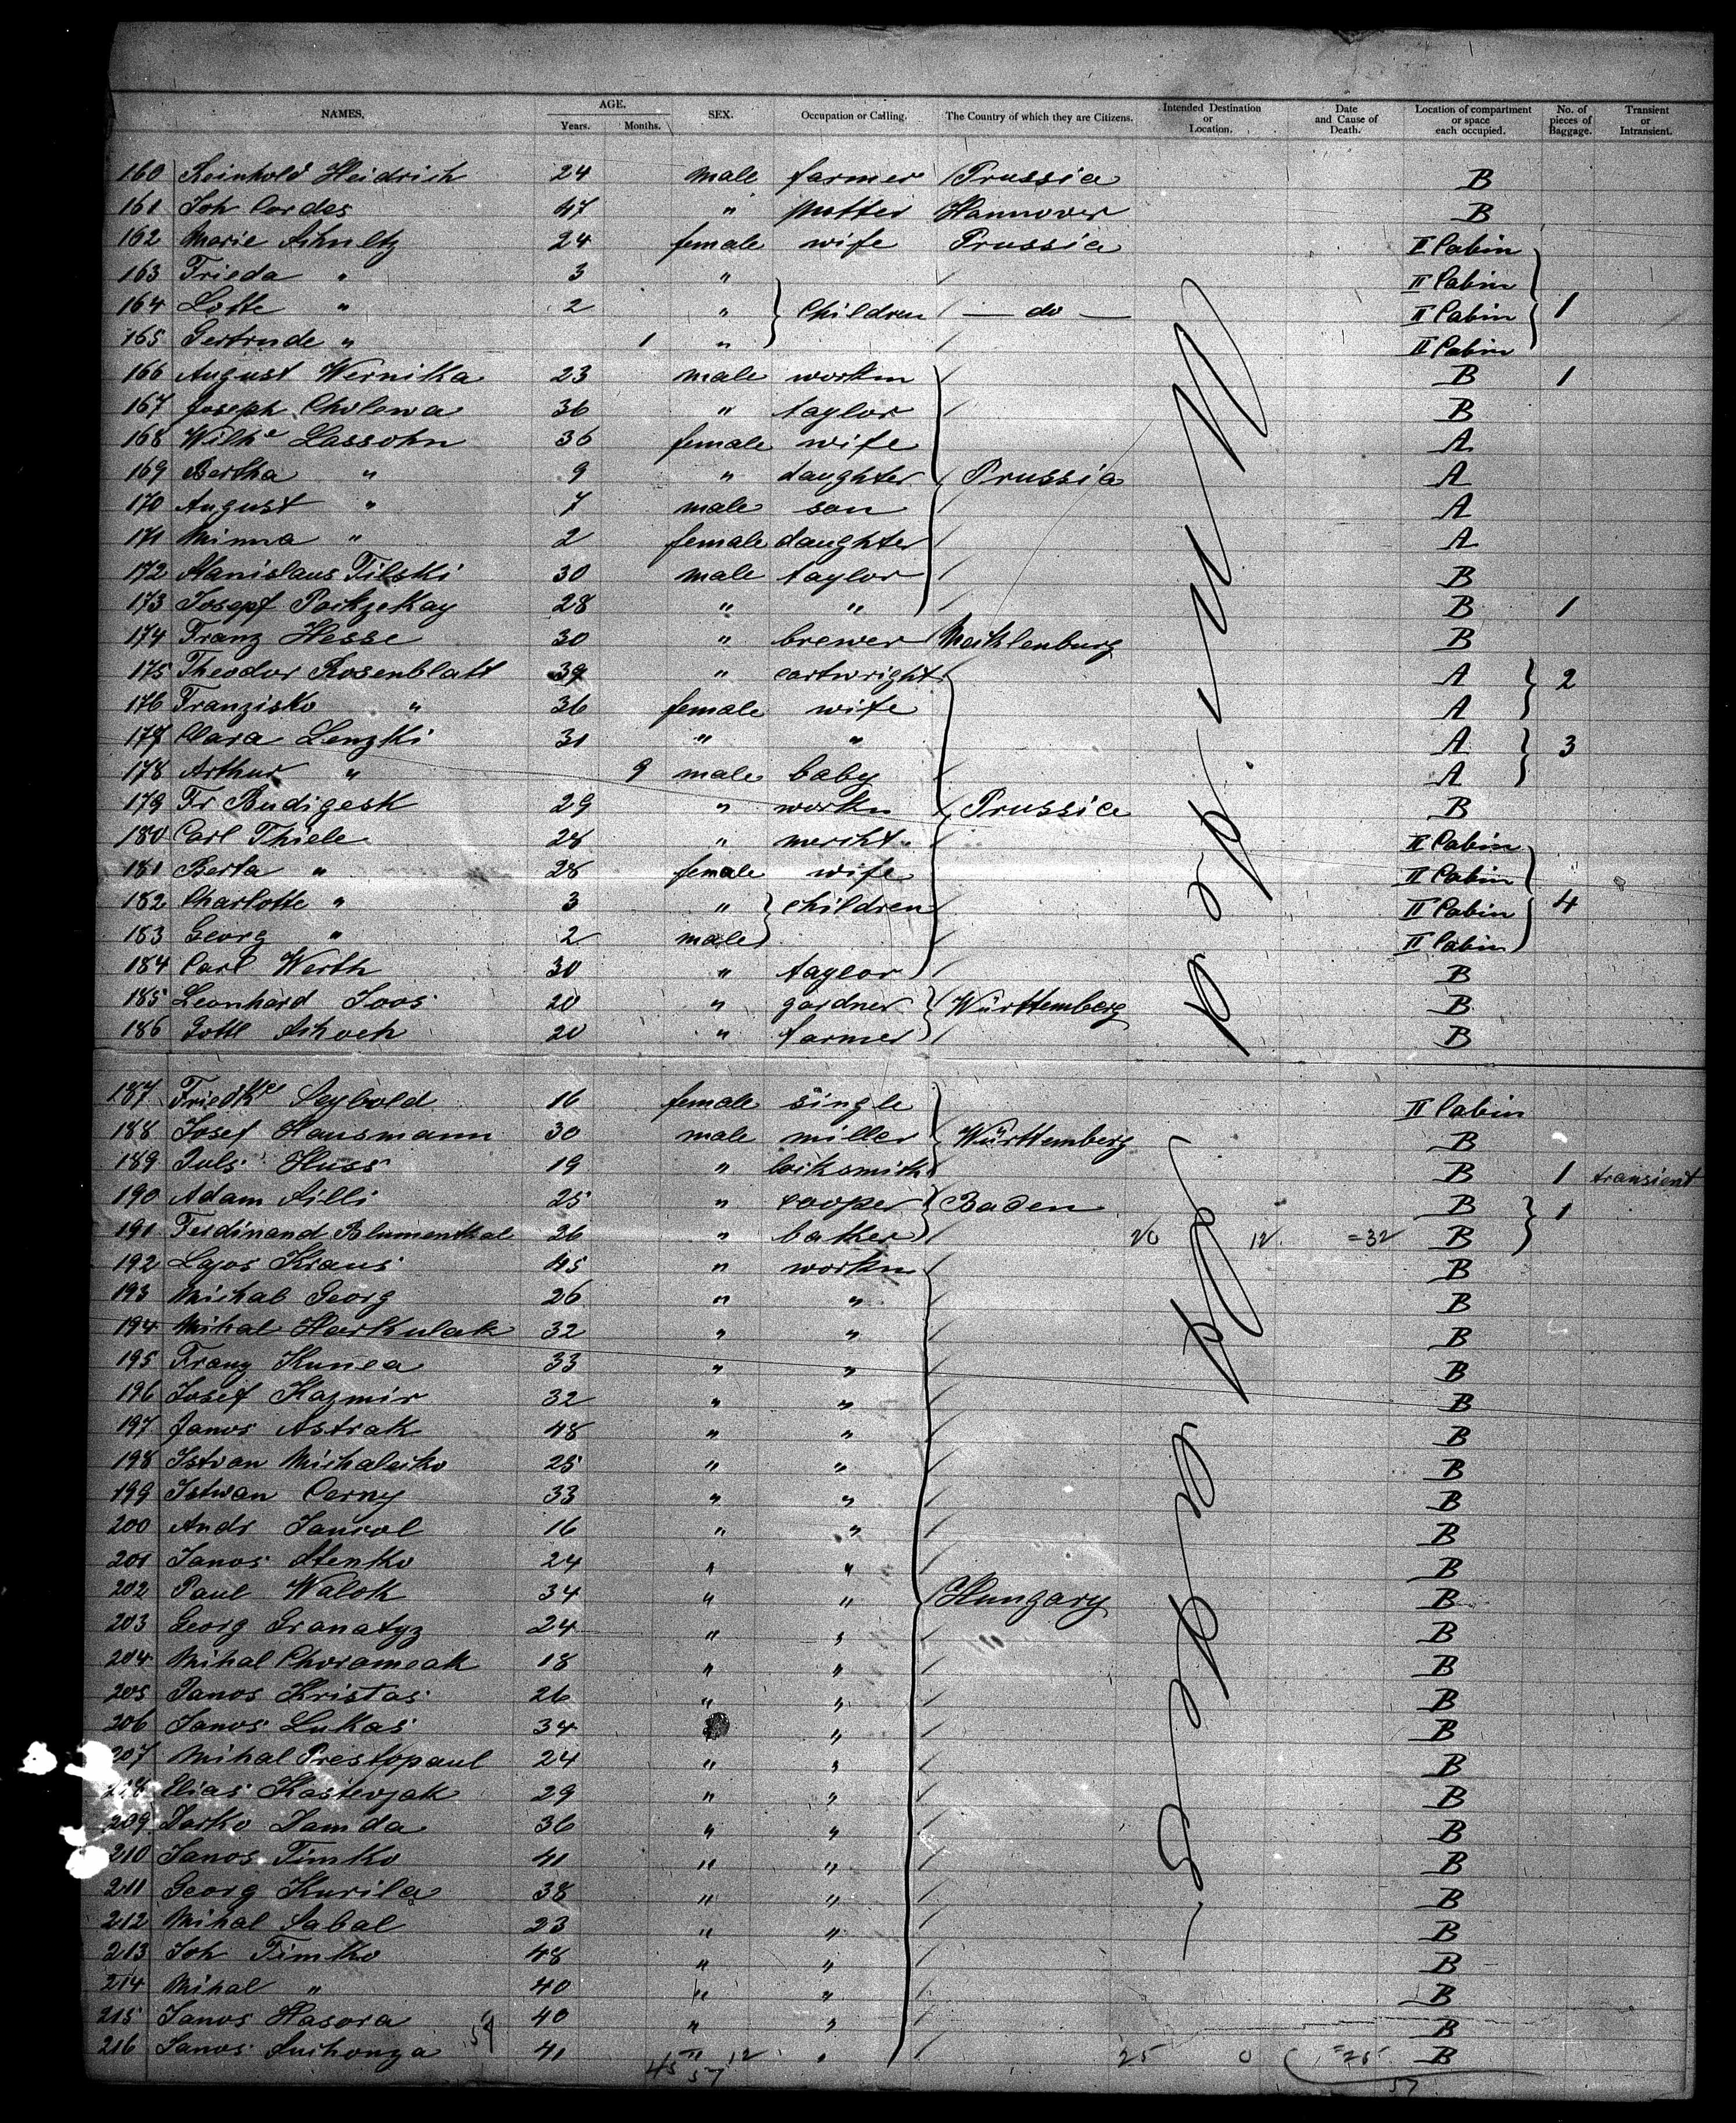 NAMES. AGE. SEX. Occupation or Calling. The Country of which they are Citizens. Intended Destination or Location. Date and Cause of Death. Location of compartment or space each occupied. No. of pieces of Baggage. Transient or Intransient.
Years. Months.
160 Reinhold Heidrich 24 male farmer Prussia B
161 Joh Cordes 47 " potter Hannover B
162 Marie Schultz 24 female wife Prussia II Cabin
163 Frieda " 3 " II Cabin
164 Lotte " 2 " Children — do — II Cabin 1
165 Gertrude " 1 " II Cabin
166 August Wernika 23 male workm B 1
167 Joseph Cholewa 36 " taylor B
168 Wilhe Lassohn 36 female wife A
169 Bertha " 9 " daughter Prussia A
170 August " 7 male son A
171 Minna " 2 female daughter A
172 Stanislaus Filski 30 male taylor B
173 Josepf 28 " " B 1
174 Franz Hesse 30 " brewer Mecklenburg B
175 Theodor Rosenblatt 39 " cartwright A 2
176 Franzisko " 36 female wife A
177 Clara Lenzki 31 " " A 3
178 Arthur " 9 male baby A
179 Fr Budigesk 29 " workm Prussia B
180 Carl Thiele 28 " mercht II Cabin
181 Berta " 28 female wife II Cabin
182 Charlotte " 3 " children II Cabin 4
183 Georg " 2 male II Cabin
184 Carl Werth 30 " taylor B
185 Leonhard Joos 20 " gardner Württemberg B
186 Gottl Schoch 20 " farmer B
187 Friedke Seybold 16 female single II Cabin
188 Josef Hausmann 30 male miller Württemberg B
189 Juls Huss 19 " locksmith B 1 transient
190 Adam Silli 25 " cooper Baden B 1
191 Ferdinand Blumenthal 26 " bather 20 12 =32 B
192 Lajos Kraus 45 " workm B
193 Michal Georg 26 " " B
194 Mihal Harkulak 32 " " B
195 Franz Kunea 33 " " B
196 Josef Kazmir 32 " " B
197 Janos Astrak 48 " " B
198 Istvan Michalcsko 25 " " B
199 Istwan Cerny 33 " " B
200 Andr 16 " " B
201 Janos Stenko 24 " " B
202 Paul Walok 34 " " Hungary B
203 Georg Granatyz 24 " " B
204 Mihal 18 " " B
205 Janos Kristas 26 " " B
206 Janos Lukas 34 " B
207 Mihal Prestopaul 24 " " B
208 Elias Kostevjak 29 " " B
209 Damda 36 " " B
210 Janos Timko 41 " " B
211 Georg Kurila 38 " " B
212 Mihal Sabal 23 " " B
213 Joh Timko 48 " " B
214 Mihal " 40 " " B
215 Janos Hasora 40 " " B
216 Janos Suchonza 41 " " 25 0 =25 B
45 12
57 57